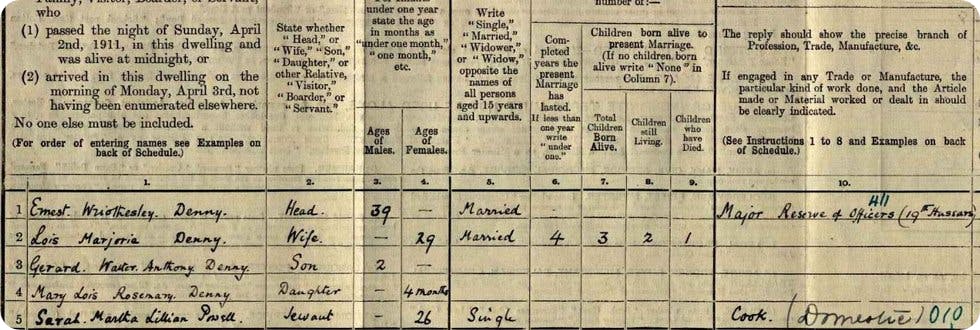 Family, Visitor, Boarder, or Servant,
who
(1) passed the night of Sunday, April
2nd, 1911, in this dwelling and
was alive at midnight, or
(2) arrived in this dwelling on the
morning of Monday, April 3rd, not
having been enumerated elsewhere.
No one else must be included.
(For order of entering names see Examples on
back of Schedule.)
State whether
"Head," or
"Wife," "Son,"
"Daughter," or
other Relative,
"Visitor,"
"Boarder," or
"Servant."
under one year
state the age
in months as
"under one month,"
"one month,"
etc.
Ages
of
Males.
Ages
of
Females.
Write
"Single,"
"Married,"
"Widower,"
or "Widow,"
opposite the
names of
all persons
aged 15 years
and upwards.
number of:—
Com-
pleted
years the
present
Marriage
has
lasted.
If less than
one year
write
"under
one."
Children born alive to
present Marriage.
(If no children born
alive write "None" in
Column 7).
Total
Children
Born
Alive.
Children
still
Living.
Children
who
have
Died.
The reply should show the precise branch of
Profession, Trade, Manufacture, &c.
If engaged in any Trade or Manufacture, the
particular kind of work done, and the Article
made or Material worked or dealt in should
be clearly indicated.
(See Instructions 1 to 8 and Examples on back
of Schedule.)
1. 2. 3. 4. 5. 6. 7. 8. 9. 10.
411
1 Ernest. Wriothesley. Denny. Head. 39 — Married Major Reserve of Officers (19th Hussars)
2 Lois Marjorie Denny. Wife. — 29 Married 4 3 2 1
3 Gerard. Walter. Anthony Denny. Son 2 —
4 Mary Lois Rosemary. Denny Daughter — 4 months
5 Sarah. Martha Lillian Powell. Servant — 26 Single Cook. (Domestic) 010